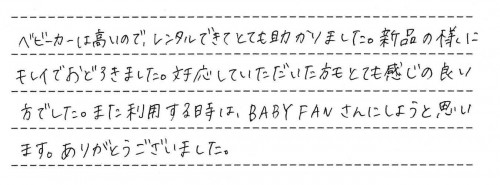 ベビーカーは高いので、レンタルできてとても助かりました。新品の様に
キレイでおどろきました。対応していただいた方もとても感じの良い
方でした。また利用する時は、BABY FANさんにしようと思い
ます。ありがとうございました。